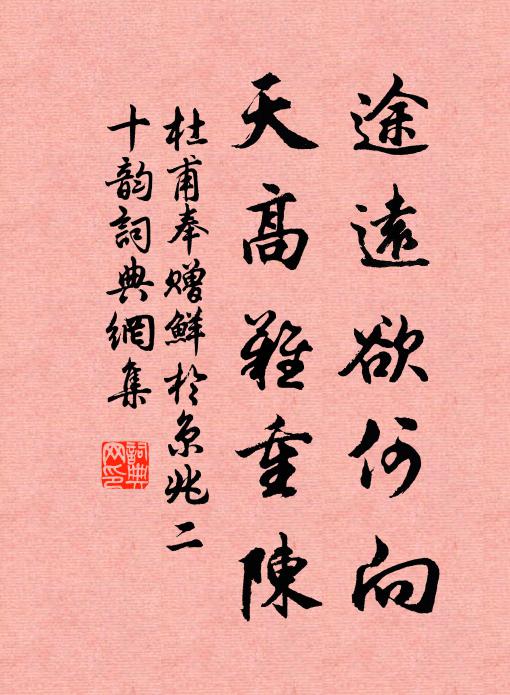 途遠欲何向
天高難重陳
杜甫奉贈鮮於京兆二
十韵詞典網集
詞典
网印